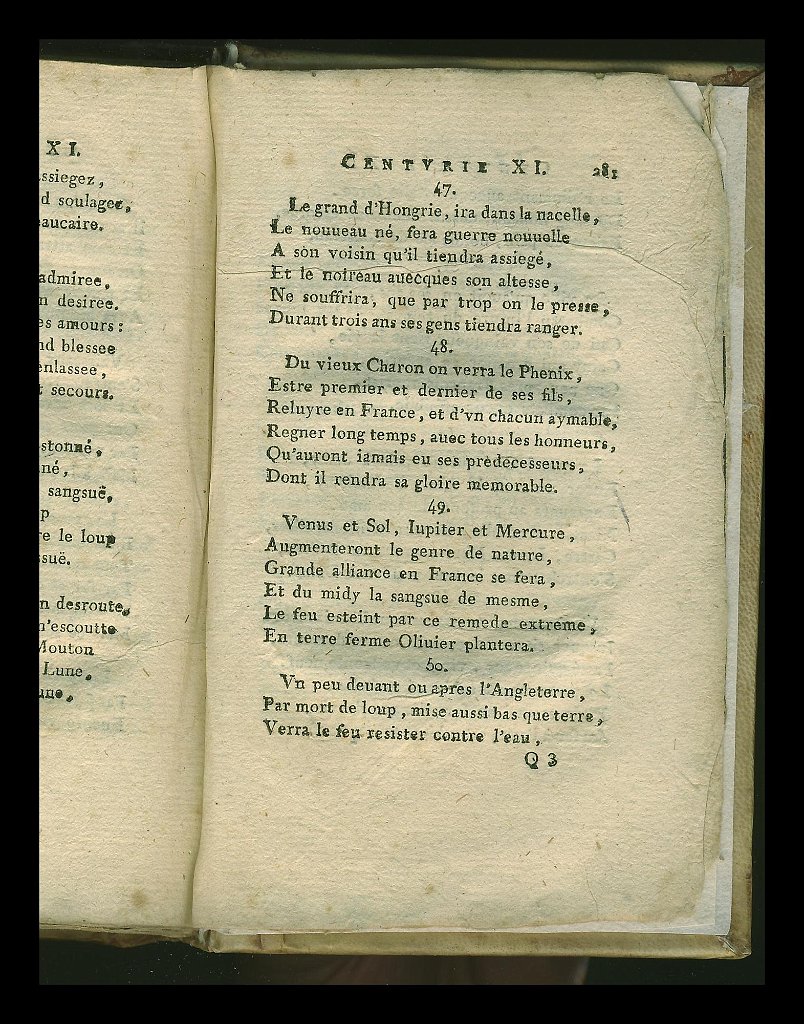 XI.
ssiegez,
d soulagee,
aucaire.
admiree,
n desiree.
es amours :
nd blessee
enlassee,
t secours.
stonné,
né,
sangsuë,
p
re le loup
ssuë.
n desroute,
n'escoutte
Mouton
Lune,
une,
CENTVRIE XI. 281
47.
Le grand d'Hongrie, ira dans la nacelle,
Le nouueau né, fera guerre nouuelle
A son voisin qu'il tiendra assiegé,
Et le noireau auecques son altesse,
Ne souffrira, que par trop on le presse,
Durant trois ans ses gens tiendra ranger.
48.
Du vieux Charon on verra le Phenix,
Estre premier et dernier de ses fils,
Reluyre en France, et d'vn chacun aymable,
Regner long temps, auec tous les honneurs,
Qu'auront iamais eu ses prédecesseurs,
Dont il rendra sa gloire memorable.
49.
Venus et Sol, Iupiter et Mercure,
Augmenteront le genre de nature,
Grande alliance en France se fera,
Et du midy la sangsue de mesme,
Le feu esteint par ce remede extreme,
En terre ferme Oliuier plantera.
50.
Vn peu deuant ou apres l'Angleterre,
Par mort de loup, mise aussi bas que terre,
Verra le feu resister contre l'eau,
Q 3